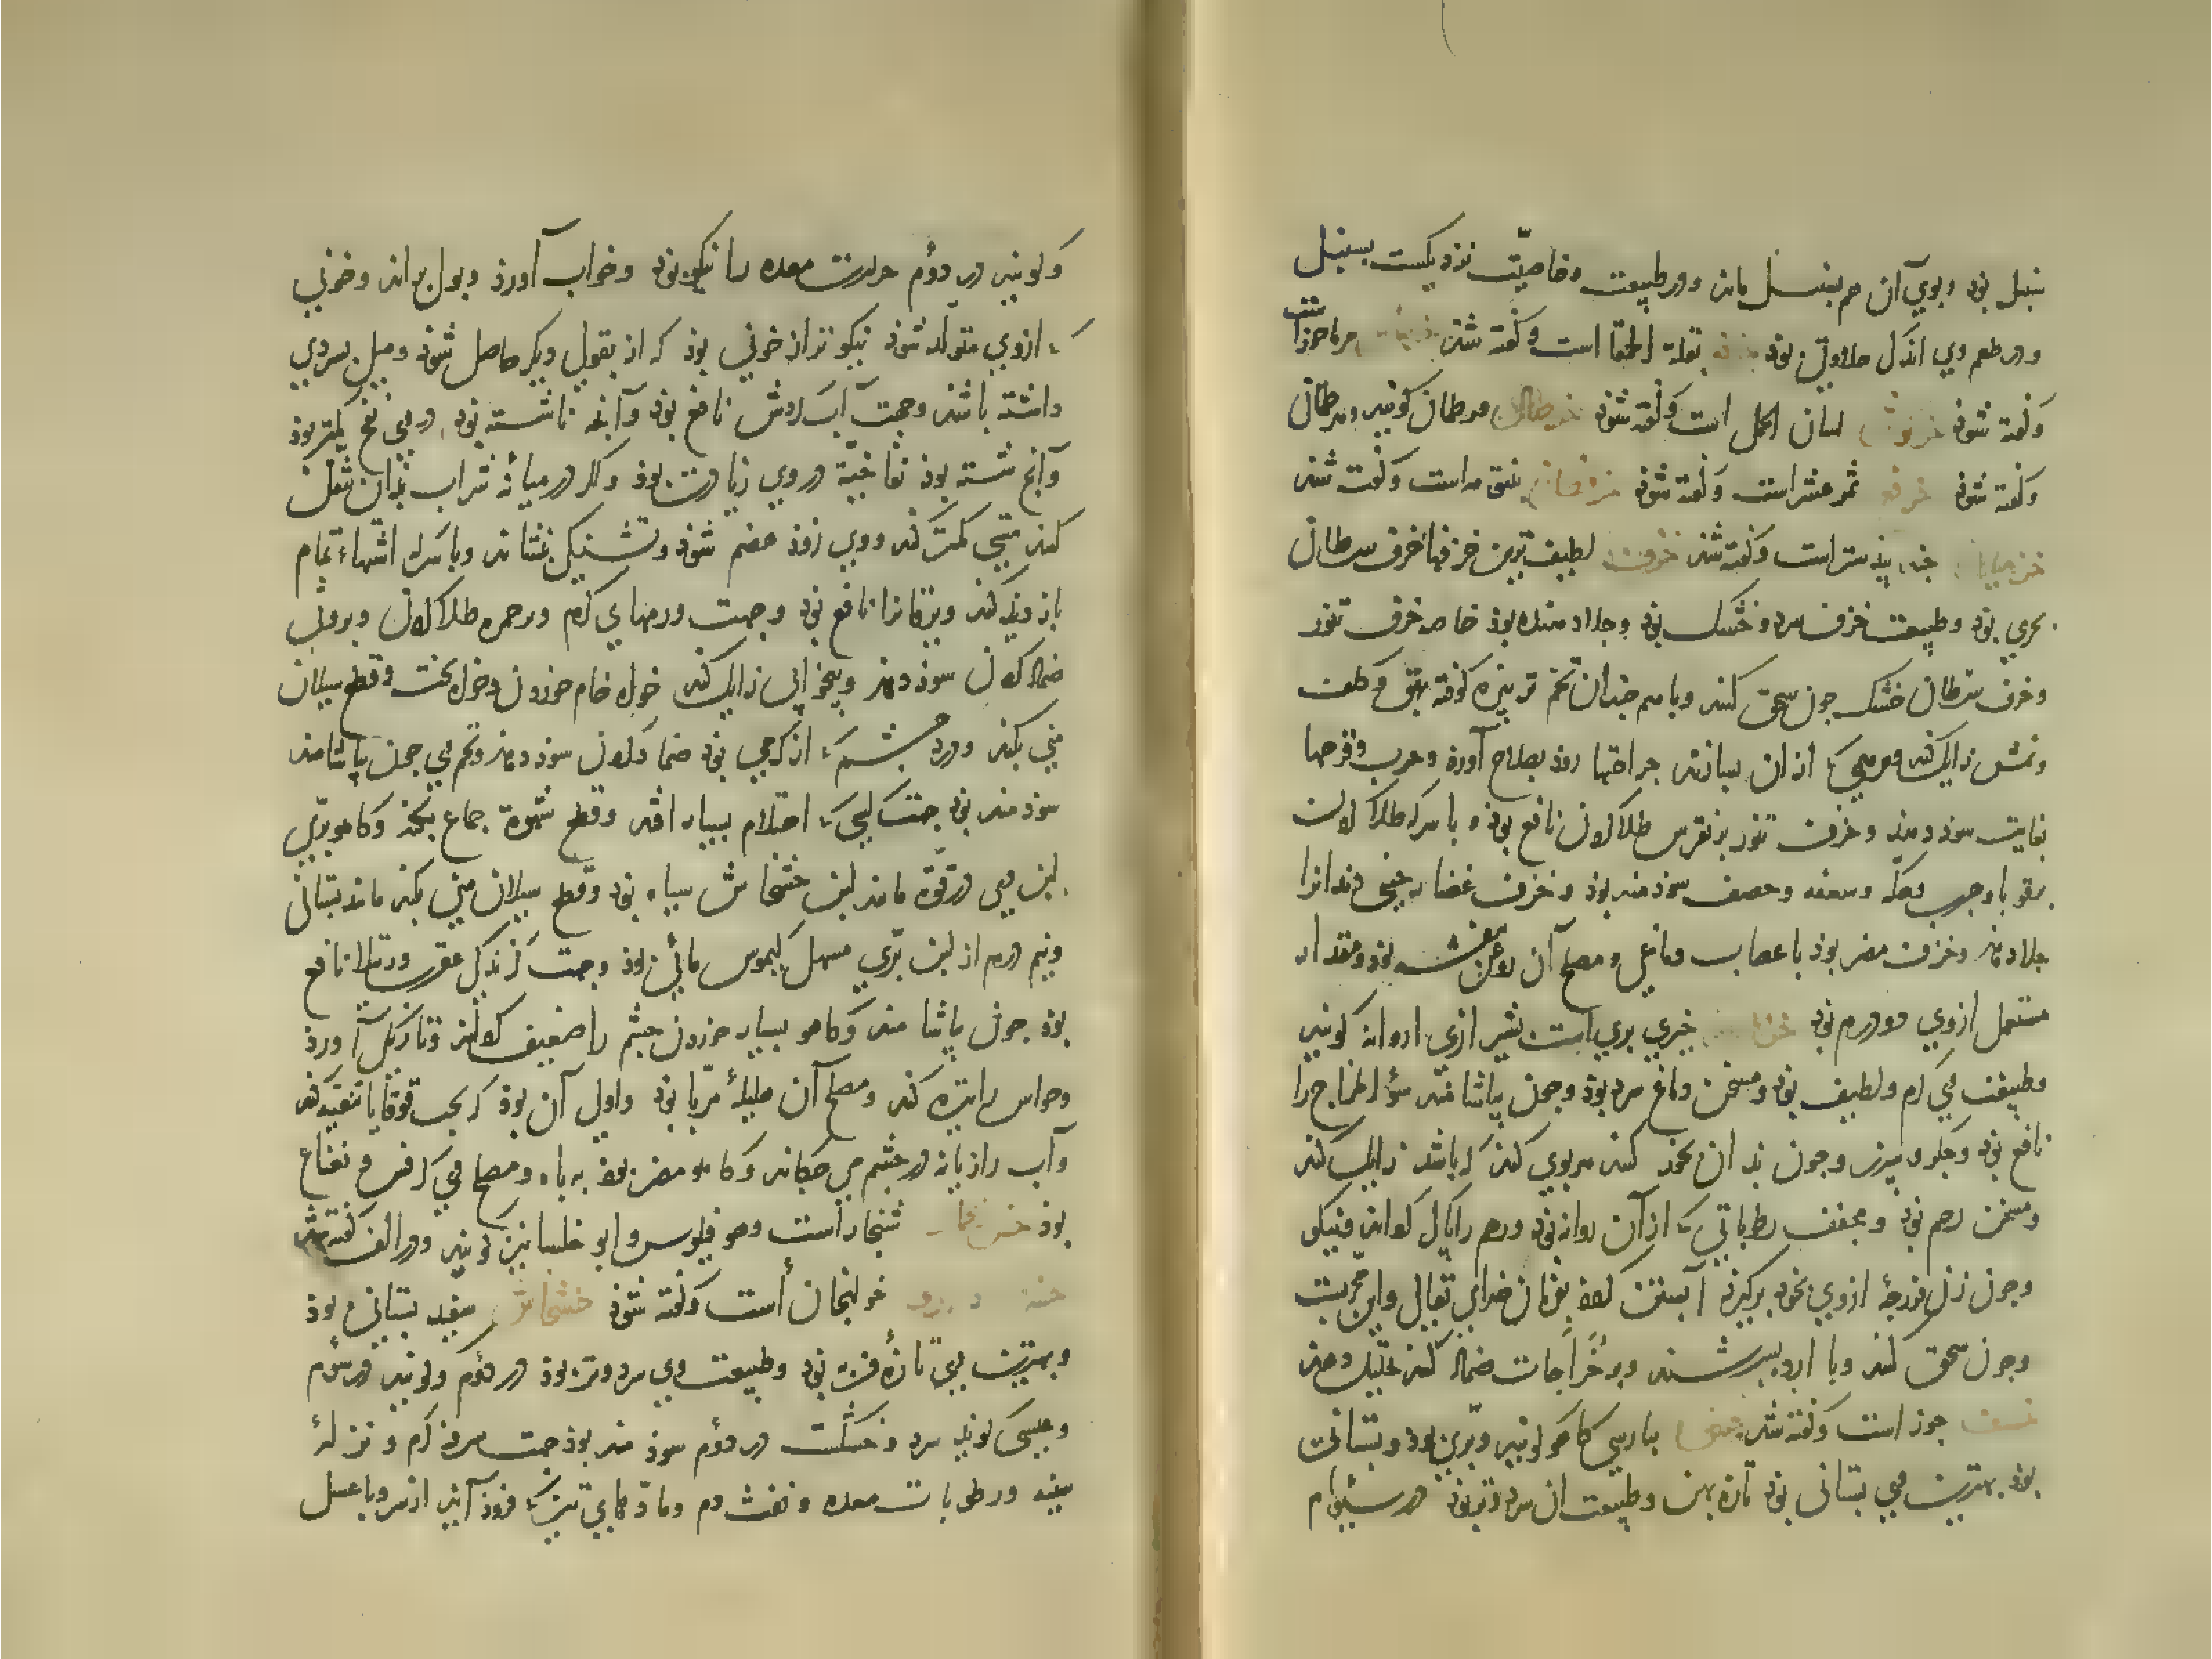 سنبل بود و بوی آن هم بسنبل ماند و در طبیعت و خاصیّت نزدیکست بسنبل
و در طعم وی اندک حلاوتی بود خرفه بقلة الحمقا است و گفته شد
و گفته شود لسان الحمل است و گفته شود خرطال هرطمان گویند و هرطمان
و گفته شود خرفع ثمر عشر است و گفته شود است و گفته شد
خزمیان جند بیدستر است و گفته شد خزف لطیف ترین خزفها خزف سرطان
بحری بود و طبیعت خزف سرد و خشک بود و جلا دهنده بود خاصه خزف تنور
و خزف سرطان خشک چون سحق کنند و با هم چندان تخم ترتیزه کوفته بهق و کلف
و نمش زایل کند و مرهمی که از آن بسازند جراحتها زود بصلاح آورد و جرب و قرحها
بغایت سود دهد و خزف تنور بر نقرس طلا کردن نافع بود و با سرکه طلا کردن
بر قوبا و جرب و حکه و سعفه و حصف سودمند بود و خزف غضار چینی دندانرا
جلا دهد و خزف مضر بود باعصاب دماغی و مصلح آن روغن بنفشه بود و مقدار
مستعمل از وی دو درم بود خزامی خیری بری است بشیرازی اروانه گویند
و طبیعت وی گرم و لطیف بود و مسخن دماغ سرد بود و چون بیاشامند سوء المزاج را
نافع بود و جگر و سپرز و چون بدان بخور کنند هر بوی گند که باشد زایل کند
و مسخن رحم بود و مجفف رطوباتی که از آن روانه بود و رحم را پاک گرداند و نیکو
و چون زن فرزجه از وی بخود برگیرد آبستن گردد بفرمان خدای تعالی و این مجربست
و چون سحق کنند و با آرد بسرشند و بر خُراجات ضماد کنند تحلیل دهند
خسف جوز است و گفته شد خس بپارسی کاهو گویند و برّی بود و بستانی
بود بهترین وی بستانی بود تازه پهن و طبیعت آن سرد و تر بود در سیوم
و گویند در دوم حرارت معده را نیکو بود و خواب آورد و بول براند و خونی
که از وی متولد شود نیکوتر از خونی بود که از بقول دیگر حاصل شود و میل بسردی
داشته باشد و جهت آب گردش نافع بود و آنچه ناشسته بود در وی نفخ کمتر بود
و آنچ شسته بود نفاخیّة در وی زیادت بود و اگر در میانهٔ شراب بدان تنقل
کنند مستی کمتر کند و وی زود هضم شود و تشنگی بنشاند و با سرکه اشتهاء تمام
بازدید کند و یرقانرا نافع بود و جهت ورمهای گرم و بر حمره طلا کردن و بر وثی
ضماد کردن سود دهد و بیخوابی زایل کند خواه خام خوردن و خواه پخته و قطع سیلان
منی بکند و درد چشم که از گرمی بود ضماد کردن سود دهد و تخم وی چون بیاشامند
سودمند بود جهت کسی که احتلام بسیار افتد و قطع شهوة جماع بکند و کاهو برّی
لبن وی در قوّة مانند لبن خشخاش سیاه بود و قطع سیلان منی بکند مانند بستانی
و نیم درم از لبن برّی مسهل کیموس مائی بود و جهت گزندگی عقرب و رتیلا نافع
بود چون بیاشامند و کاهو بسیار خوردن چشم را ضعیف گرداند و تاریکی آورد
و حواس را تیره کند و مصلح آن هلیلهٔ مربّا بود و اولی آن بود که بحب قوقایا تنقیه کند
و آب رازیانه در چشم می چکاند و کاهو مضر بود به باه و مصلح وی کرفس و نعناع
بود خس الحمار شنجار است و هوفیلوس و ابو خلسا نیز گویند و در الف گفته شد
خسرو دارو خولنجان است و گفته شود خشخاش سفید بستانی بود
و بهترین وی تازهٔ فربه بود و طبیعت وی سرد و تر بود در دوم و گویند در سوم
و عیسی گوید سرد و خشکست در دوم سودمند بود جهت سرفه گرم و نزلهٔ
سینه و رطوبات معده و نفث دم و مادّهای تیز که فرود آید از سر و با عسل